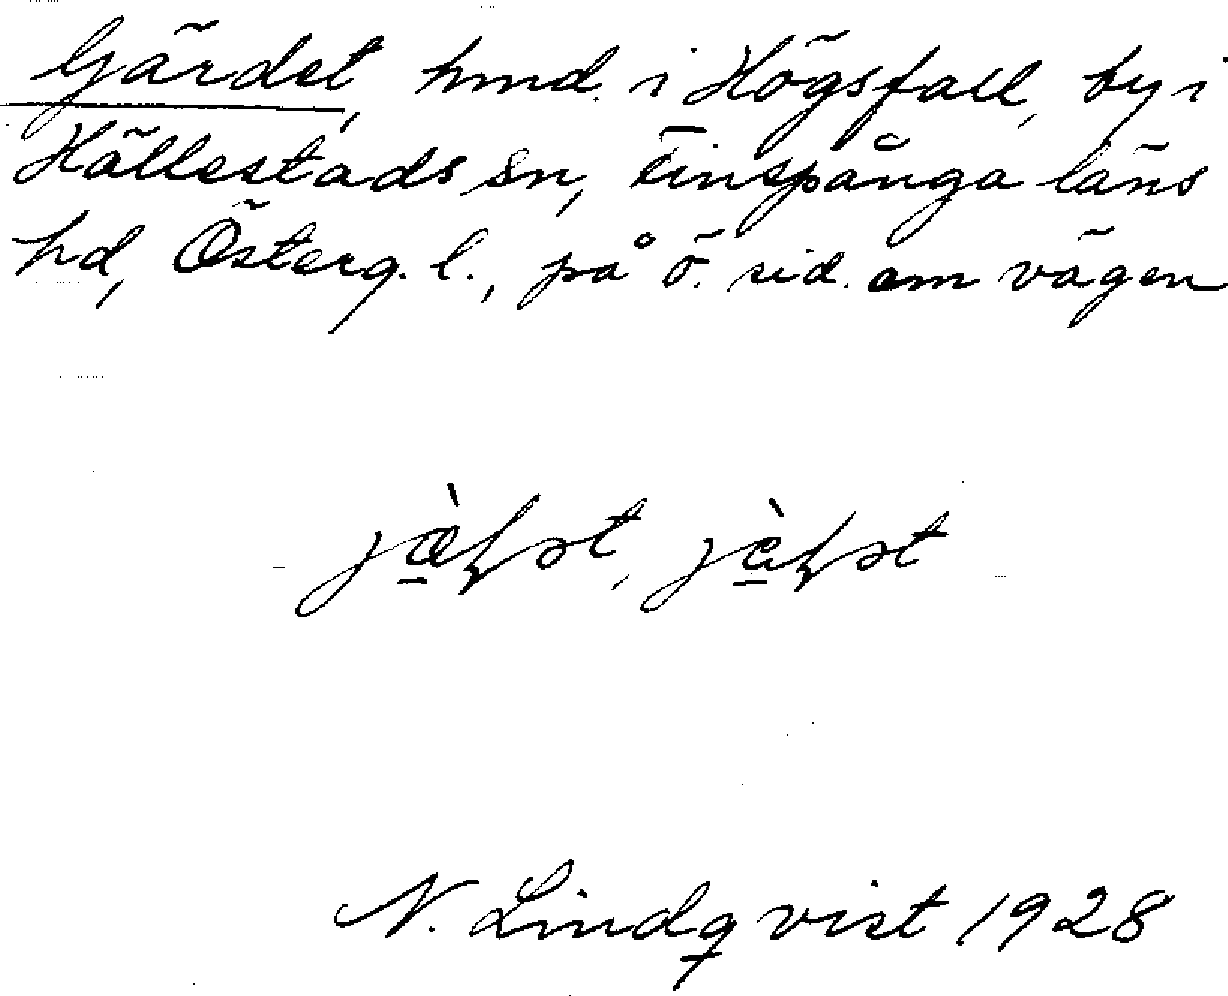 Gärdet, hmd. i Högsfall, by i
Hällestads sn, Finspånga läns
hd, Österg. l., på ö. sid. om vägen
N. Lindqvist 1928